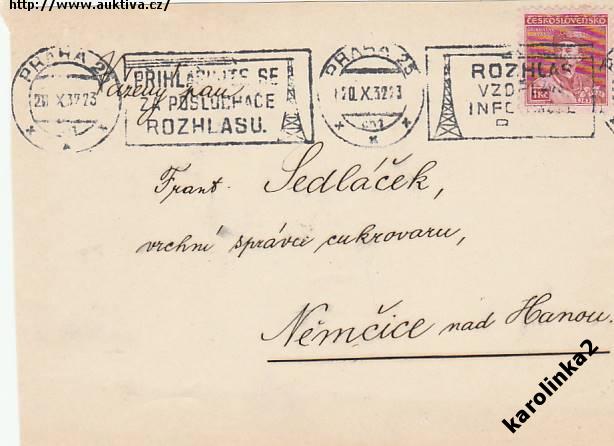 http://www.auktiva.cz/
ČESKOSLOVENSKO
PRAHA 25
PŘIHLASUJTE SE
ZA POSLUCHAČE
ROZHLASU.
20.X.32 23
PRAHA 25
20.X.32 23
ROZHLAS
Vážený pan
Frant. Sedláček,
vrchní správce cukrovaru,
Němčice nad Hanou.
karolinka2